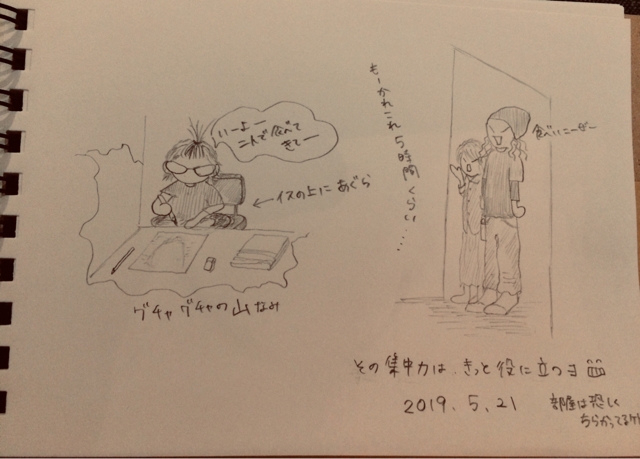 いーよー
二人で食べて
きてー
←イスの上にあぐら
グチャグチャの山なみ
もーかれこれ5時間くらい・・・
食べいこーぜー
その集中力は、きっと役に立つヨ
2019.5.21
部屋は恐しく
ちらかってるケド